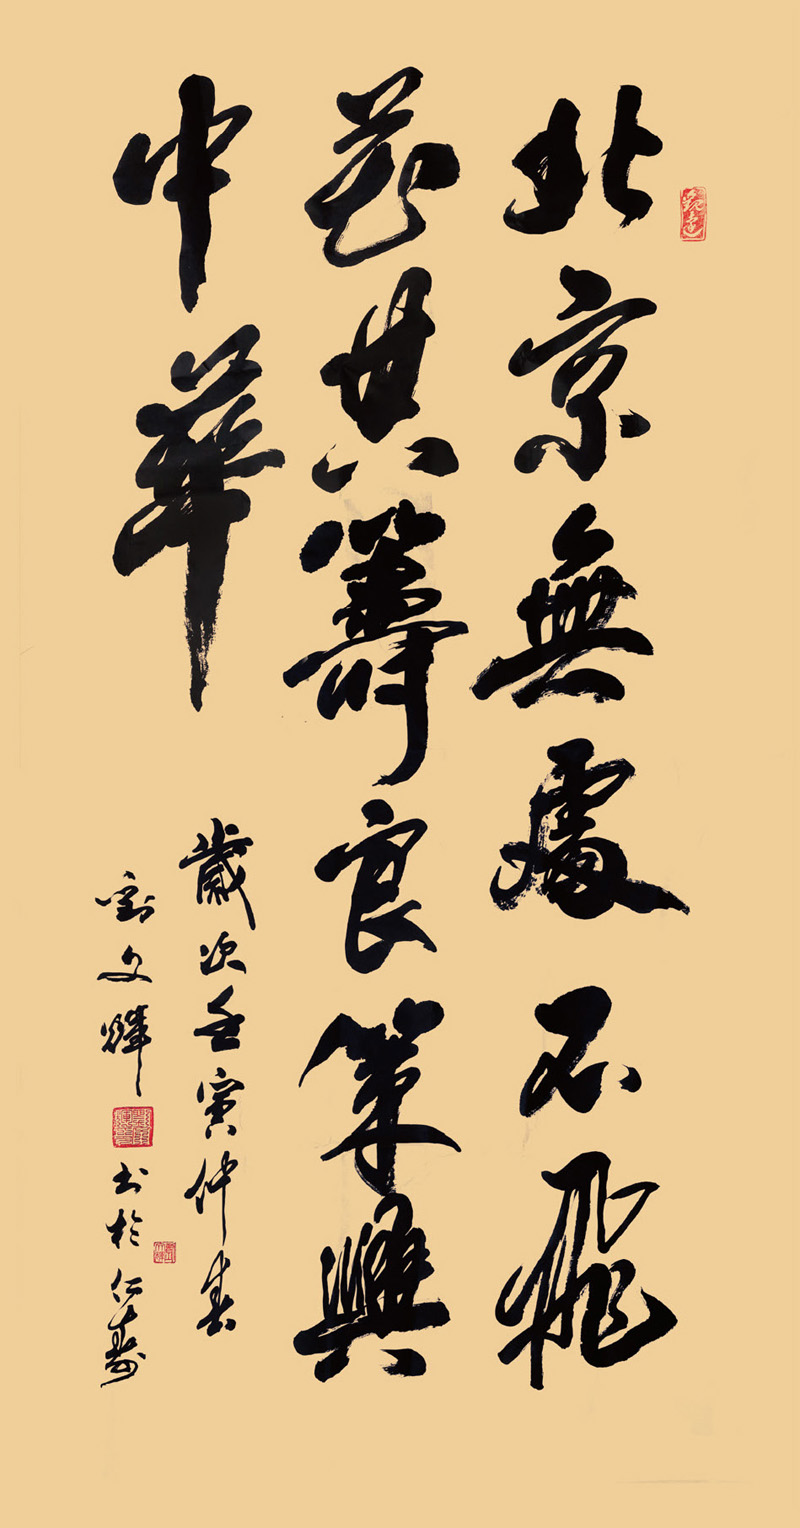 北京無處不飛
花共籌良策興
中華
歲次壬寅仲春
劉文輝
書於仁壽